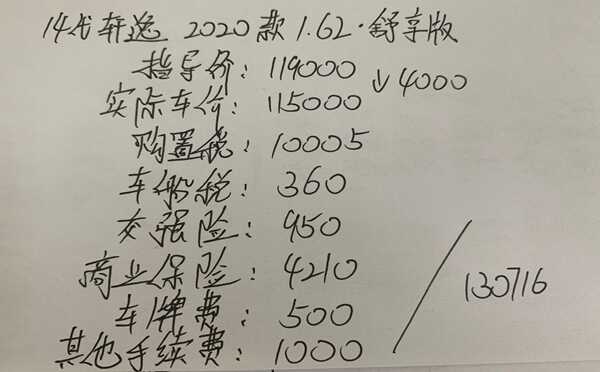 14代轩逸 2020款1.6L·舒享版
指导价：119000
↓4000
实际车价：115000
购置税：10005
车船税：360
交强险：950
商业保险：4210
车牌费：500
其他手续费：1000
130716